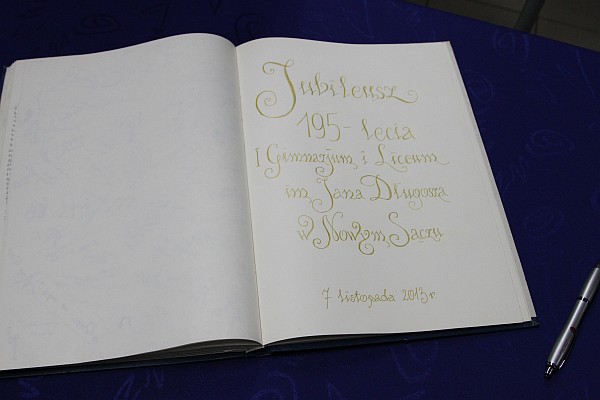 Jubileusz
195-lecia
I Gimnazjum i Liceum
im. Jana Długosza
w Nowym Sączu
7 listopada 2013 r.